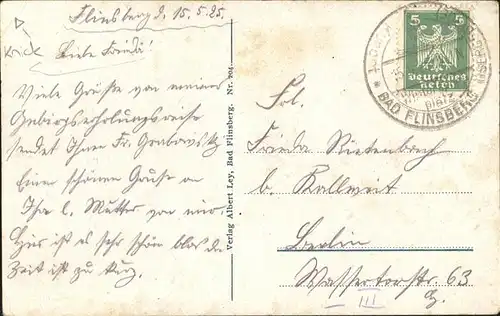 Flinsberg d. 15.5.25.
Liebe Frieda!
Viele Grüße von meiner
Gebirgserholungsreise
sendet Ihnen Fr. Grabowsky
Einen schönen Gruss an
Ihre l. Mutter von mir.
Hier ist es sehr schön blos die
Zeit ist zu kurz.
Verlag Albert Ley, Bad Flinsberg. Nr. 204
5 5
Deutsches
Reich
BAD FLINSBERG
Frl.
Frieda Rietenbach
b. Kallweit
Berlin
Wassertorstr. 63
III